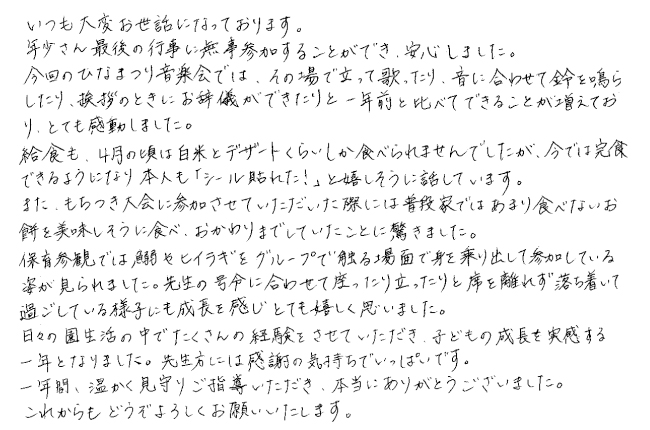 いつも大変お世話になっております。
年少さん最後の行事に無事参加することができ、安心しました。
今回のひなまつり音楽会では、その場で立って歌ったり、音に合わせて鈴を鳴ら
したり、挨拶のときにお辞儀ができたりと一年前と比べてできることが増えてお
り、とても感動しました。
給食も、4月の頃は白米とデザートくらいしか食べられませんでしたが、今では完食
できるようになり本人も「シール貼れた!」と嬉しそうに話しています。
また、もちつき大会に参加させていただいた際には普段家ではあまり食べないお
餅を美味しそうに食べ、おかわりまでしていたことに驚きました。
保育参観では鰯やヒイラギをグループで触る場面で身を乗り出して参加している
姿が見られました。先生の号令に合わせて座ったり立ったりと席を離れず落ち着いて
過ごしている様子にも成長を感じとても嬉しく思いました。
日々の園生活の中でたくさんの経験をさせていただき、子どもの成長を実感する
一年となりました。先生方には感謝の気持ちでいっぱいです。
一年間、温かく見守りご指導いただき、本当にありがとうございました。
これからもどうぞよろしくお願いいたします。